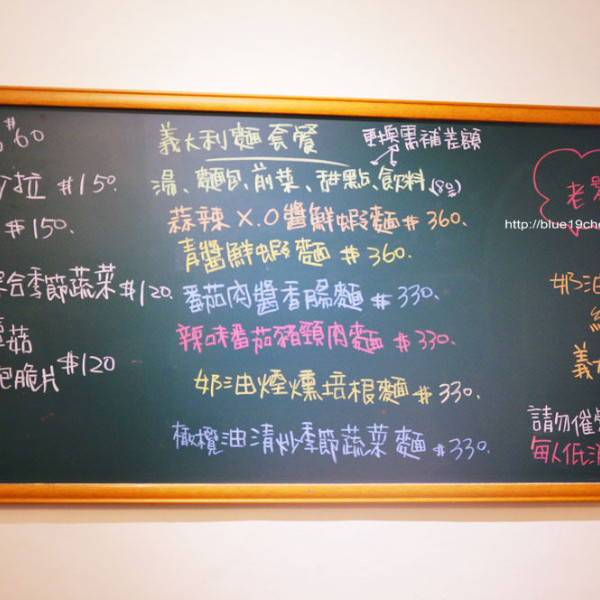 #60
拉 #150.
#150.
合季節蔬菜 #120.
菇
脆片 #120
義大利麵套餐
更換需補差額
湯、麵包、前菜、甜點、飲料(80)
蒜辣X.O醬鮮蝦麵 #360.
青醬鮮蝦麵 #360.
番茄肉醬香腸麵 #330.
辣味番茄豬頸肉麵 #330.
奶油煙燻培根麵 #330.
橄欖油清炒季節蔬菜麵 #330.
老
http://blue19che
奶油
義大
請勿催
每人低消